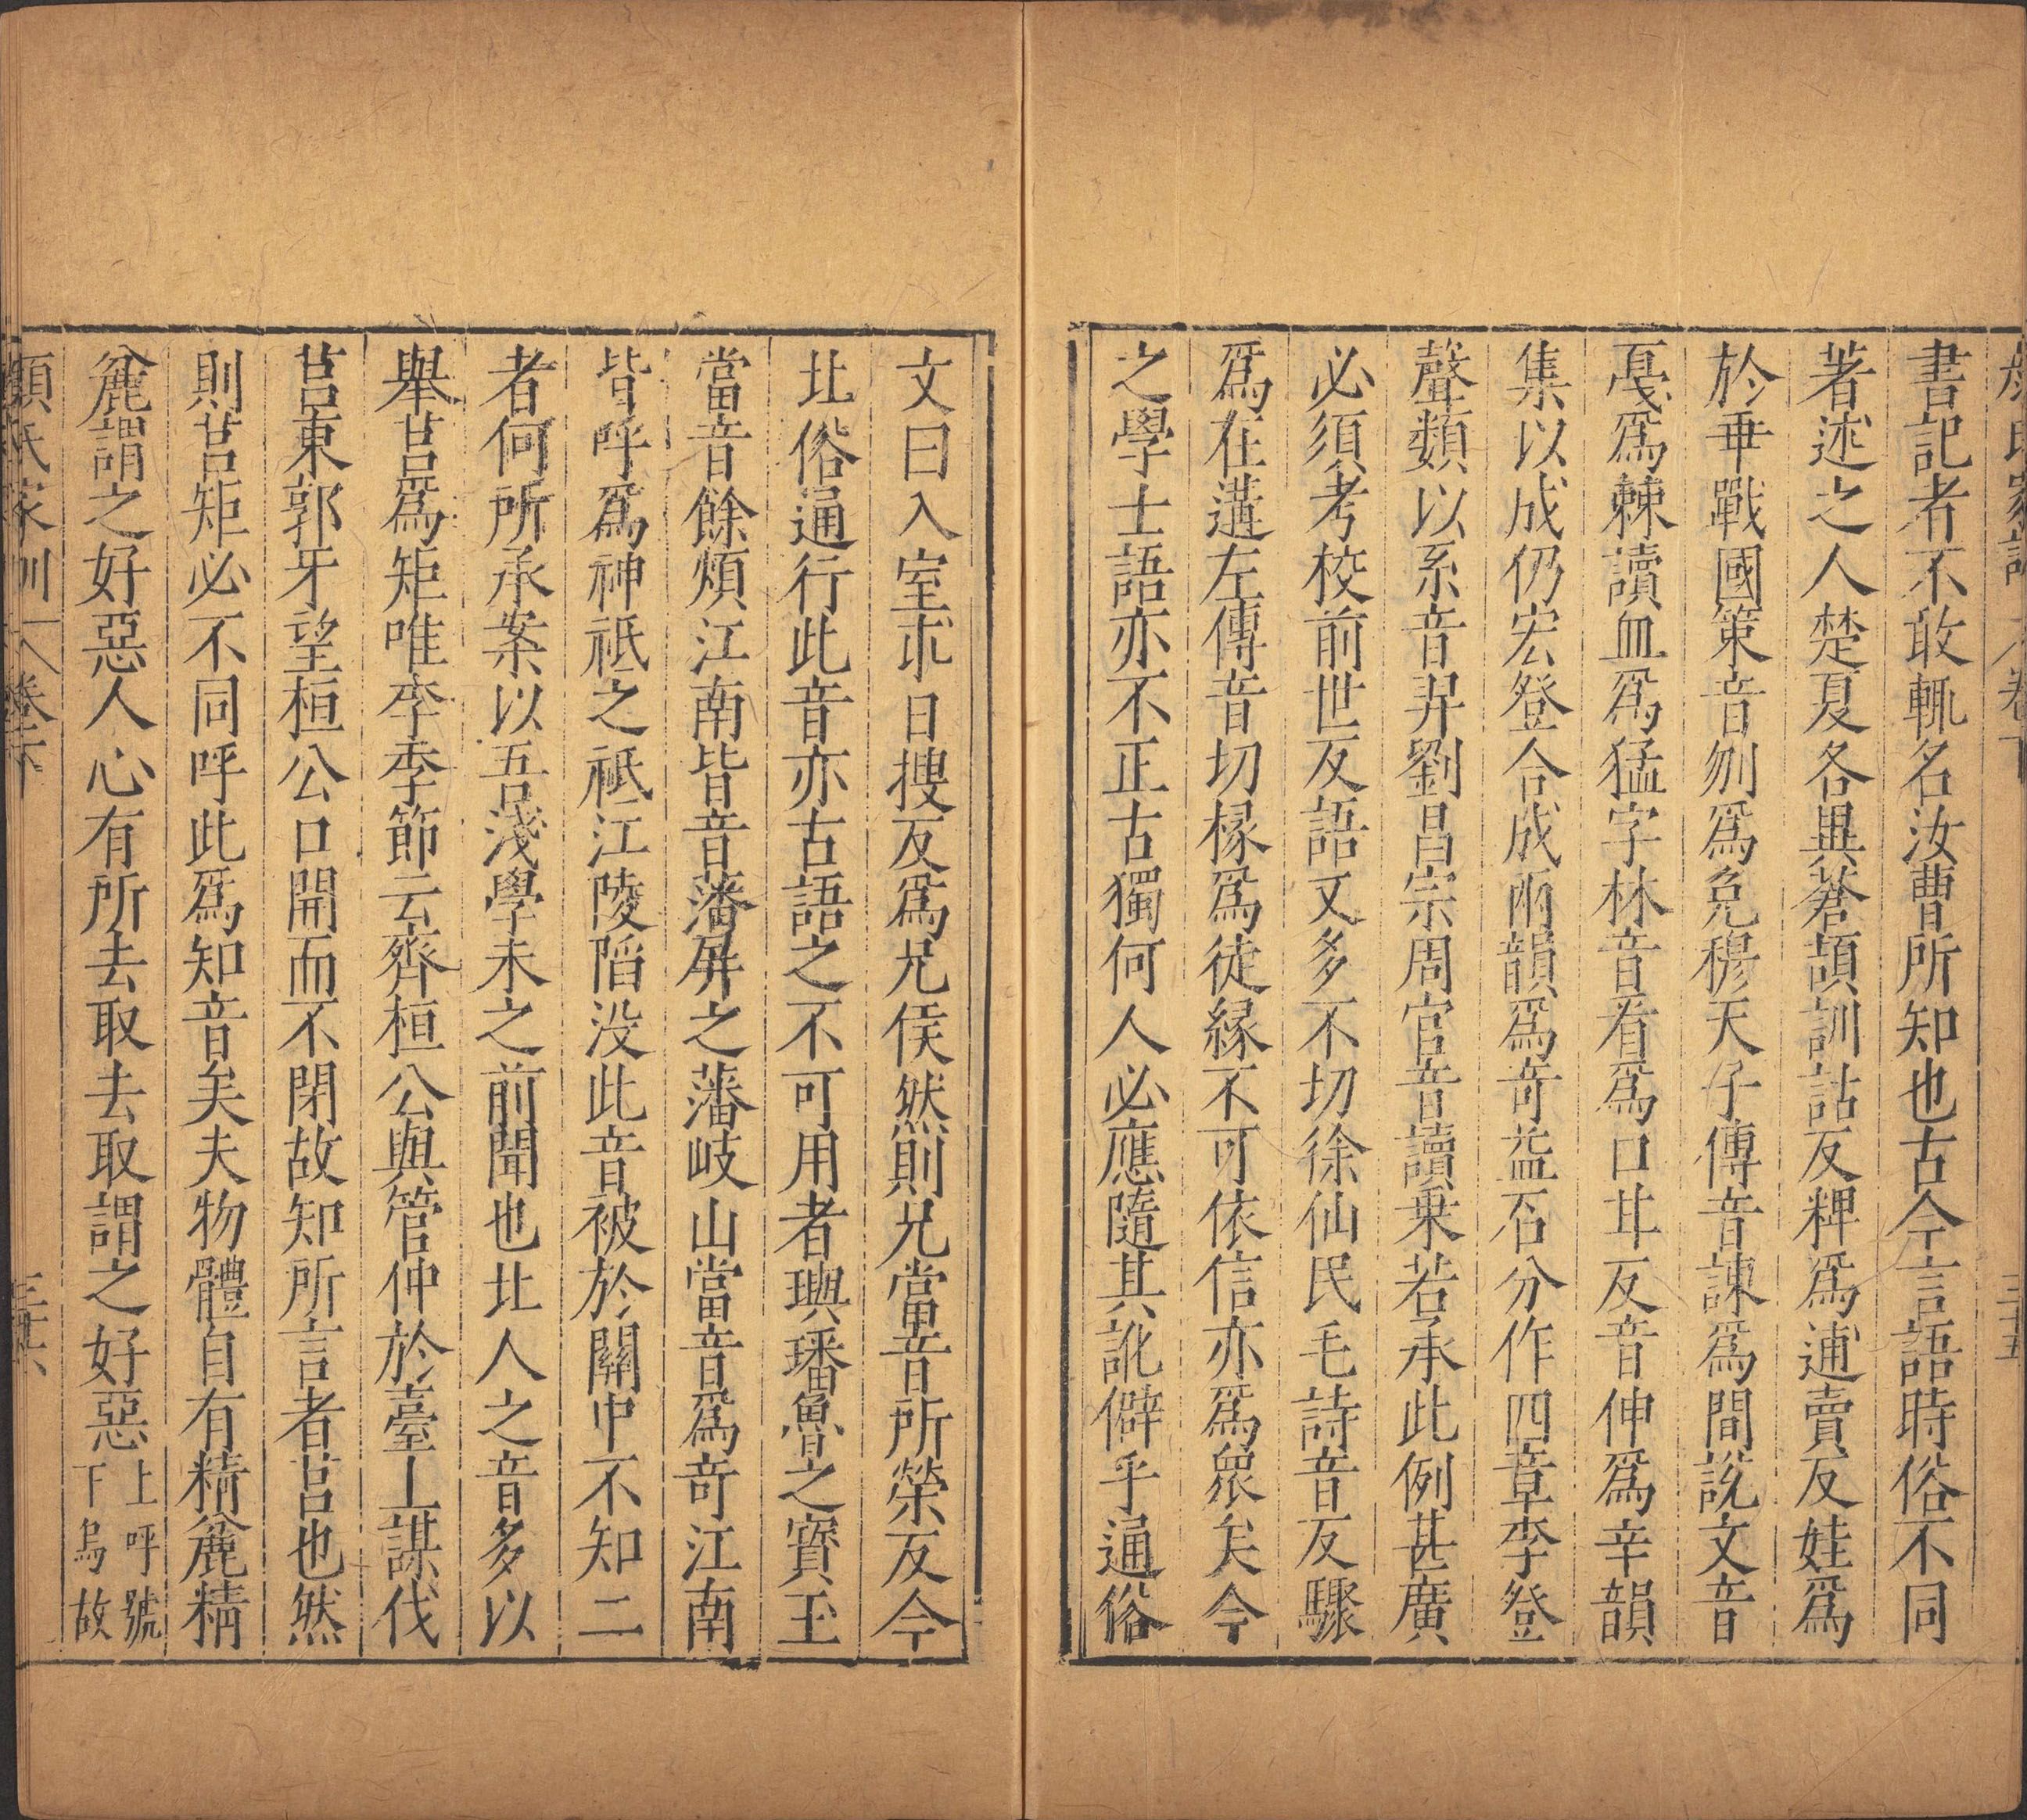 顏氏家訓 卷下 三十五
書記者不敢輒名汝曹所知也古今言語時俗不同
著述之人楚夏各異蒼頡訓詁反粺爲逋賣反娃爲
於乖戰國策音刎爲免穆天子傳音諫爲間說文音
戞爲棘讀皿爲猛字林音看爲口甘反音伸爲辛韻
集以成仍宏登合成兩韻爲奇益石分作四章李登
聲類以系音羿劉昌宗周官音讀乗若承此例甚廣
必須考校前世反語又多不切徐仙民毛詩音反驟
爲在遘左傳音切椽爲徒緣不可依信亦爲衆矣今
之學士語亦不正古獨何人必應隨其訛僻乎通俗
文曰入室求曰搜反爲兄侯然則兄當音所榮反今
北俗通行此音亦古語之不可用者璵璠魯之寳玉
當音餘煩江南皆音藩屏之藩岐山當音爲竒江南
皆呼爲神祗之祗江陵䧟没此音被於關中不知二
者何所承案以吾淺學未之前聞也北人之音多以
舉莒爲矩唯李季節云齊桓公與管仲於臺上謀伐
莒東郭牙望桓公口開而不閉故知所言者莒也然
則莒矩必不同呼此爲知音矣夫物體自有精麄精
麄謂之好惡人心有所去取去取謂之好惡上呼號下烏故
顏氏家訓 卷下 三十六